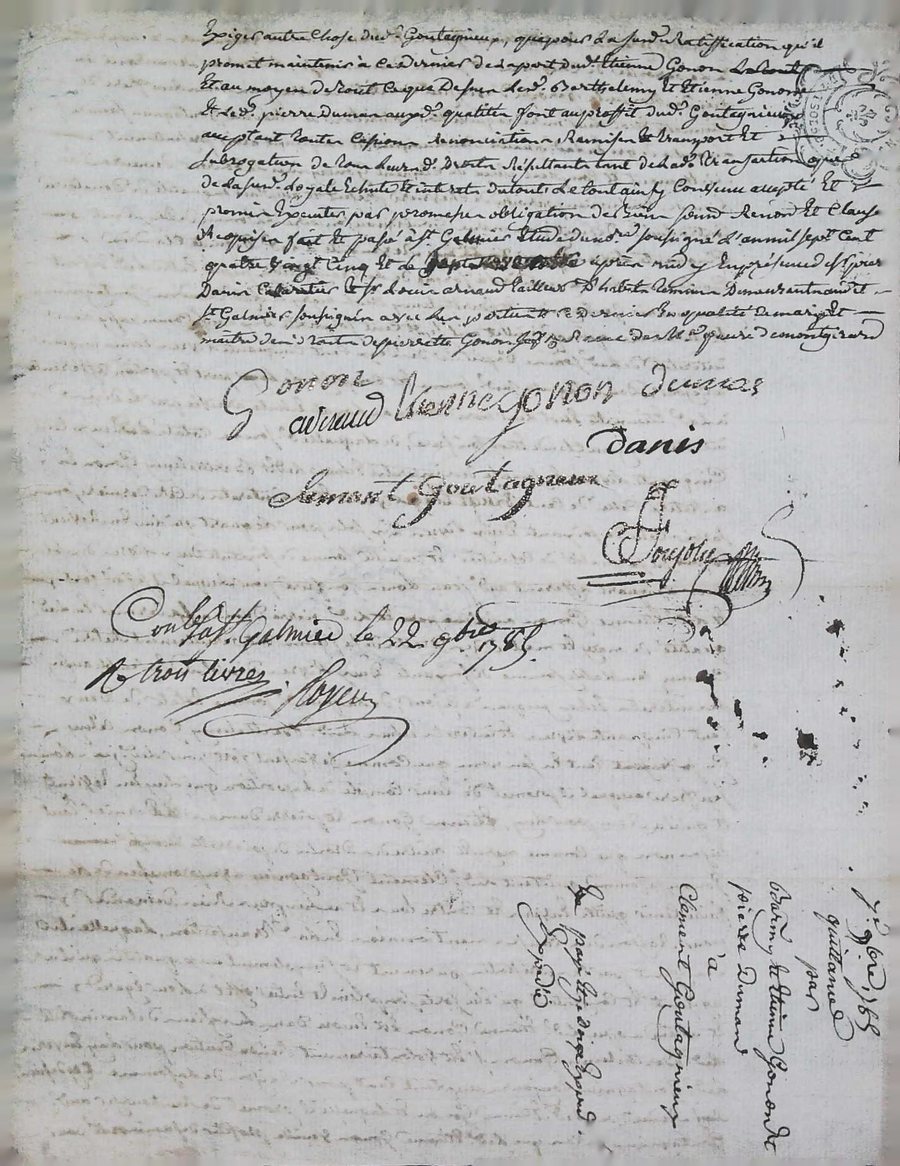 Exiger autre Chose dud.t Goutagnieux, que pour La susd.e Ratification qu'il
promet maintenir a Ce dernier de la part dud.t Etienne Gonon
Et au moyen de tout Ce que Dessus Les d.t Barthelemy Et Etienne Gonon
Et Led.t pierre Dumas auxd.t qualités font au proffit dud.t Goutagnieux
acceptant toutes Cessions Renonciations Remises Et transport Et
subrogation de tous Leurs d.t Droits Résultants tant de lad.e transaction que
de La susd.e Loyale Echute Et interets du tout Le Contenu cy Consenu accepté Et
promis Executer par promesse obligation de Biens soumd Renond Et Clause
Requises fait Et passé a St. Galmier Etude du no.re soussigné L'an mil sept Cent
quatre vingt Cinq Et Le après midy En présence de
Danis Cabaretier Et Sr Louis arnaud tailleur D'habits temoins Demeurant aud.t
St. Galmier soussignés avec Les parties Ce dernier En qualité de mary Et
maitre des droits de pierrette Gonon
Gonon
arnaud Etienne gonon dumas
danis
clement goutagneux
Ponjolly
Con.lé a St. Galmier le 22 9bre 1785
R trois livres. Royeux
7.e 9bre 1785
quittance
par
Barmy Et Etienne Gonon Et
pierre Dumas
à
Clement Goutagnieux
Expedié